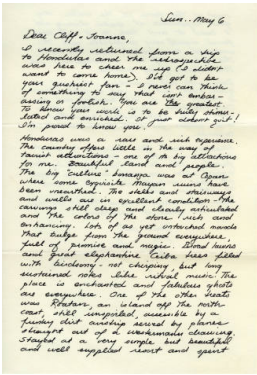 Sun.. May 6
Dear Cliff + Joanne,
I recently returned from a trip
to Honduras and the retrospective
was here to cheer me up (I didn't
want to come home). I've got to be
your gushiest fan - I never can think
of something to say that isn't embar-
assing or foolish. You are the greatest
To know your work is to be truly stimu-
lated and enriched. It just doesn't quit!
I'm proud to know you.
Honduras was a rare and rich experience.
The country offers little in the way of
tourist attractions - one of its big attractions
for me. Beautiful land and people.
The big "culture" bonanza was at Copan
where some exquisite Mayan ruins have
been unearthed. The stelas and stairways
and walls are in excellent condition - the
carvings still deep and clearly articulated
and the colors of the stone rich and
enhancing. Lots of as yet untouched mounds
that bulge from the ground everywhere,
full of promise and magic. Broad lawns
and great elephantine Ceiba trees filled
with birdsong - not chirping, but long
sustained notes like ritual music. The
place is enchanted and fabulous ghosts
are everywhere. One of the other treats
was Roatan, an island off the north
coast, still unspoiled, accessible by a
funky dirt airstrip served by planes
straight out of a Westermann drawing.
stayed at a very simple but beautiful
and well supplied resort and spent